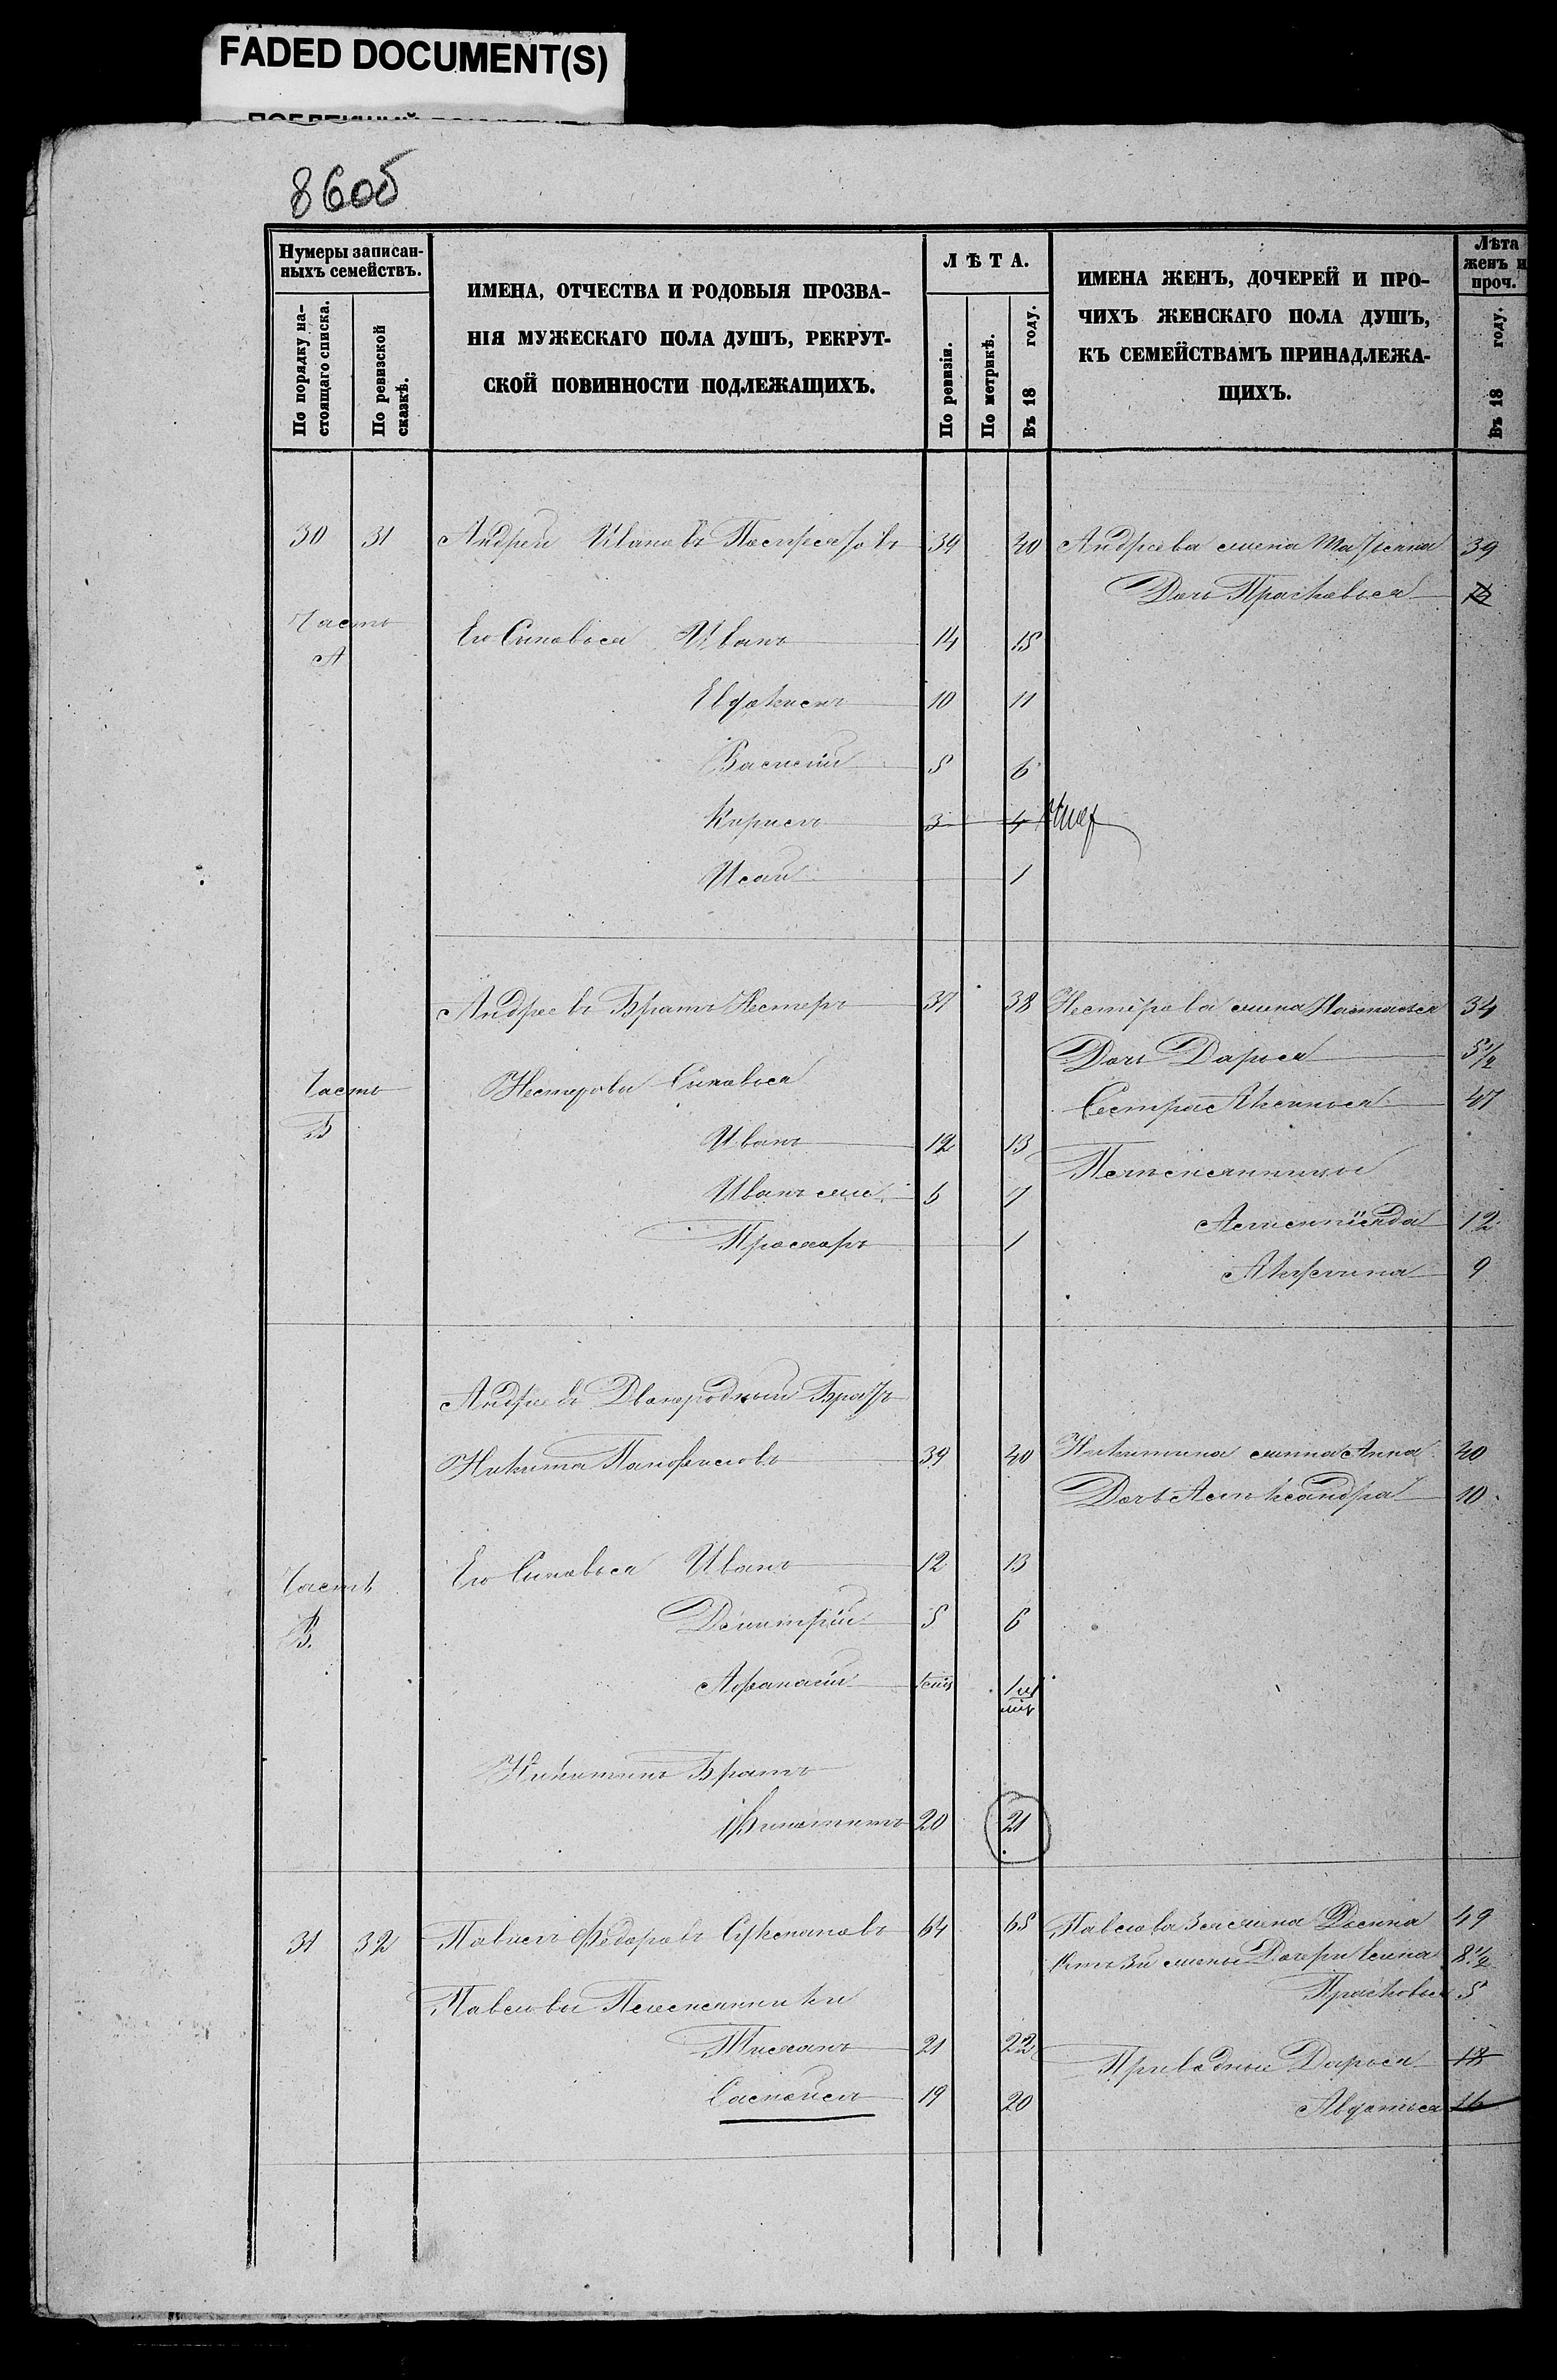 FADED DOCUMENT(S)
86об
Нумеры записан-
ныхъ семействъ.
По порядку на-
стоящаго списка.
По ревизской
сказкѣ.
ИМЕНА, ОТЧЕСТВА И РОДОВЫЯ ПРОЗВА-
НІЯ МУЖЕСКАГО ПОЛА ДУШЪ, РЕКРУТ-
СКОЙ ПОВИННОСТИ ПОДЛЕЖАЩИХЪ.
ЛѢТА.
По ревизіи.
По метрикѣ.
Въ 18 году.
ИМЕНА ЖЕНЪ, ДОЧЕРЕЙ И ПРО-
ЧИХЪ ЖЕНСКАГО ПОЛА ДУШЪ,
КЪ СЕМЕЙСТВАМЪ ПРИНАДЛЕЖА-
ЩИХЪ.
Лѣта
женъ и
проч.
Въ 18 году.
30 31 Андрей Ивановъ 39 40 Андреева жена Татьяна 39
Дочь Прасковья
Часть Его Сыновья Иванъ 14 15
А
Евдокимъ 10 11
Василій 5 6
Кирилъ 3 4 умер
Исай 1
Андреевъ Братъ Нестеръ 37 38 Нестерова жена Настасья 34
Дочь Дарья 5 1/2
Часть Нестеровы Сыновья
Сестра Аксинья 47
Б
Иванъ 12 13
Племянницы
Иванъ 6 7
12
Прохоръ 1
Акулина 9
Андреевъ Двоюродный Братъ
Никита Панфиловъ 39 40 Никитина жена Анна 40
Дочь Александра 10
Часть Его Сыновья Иванъ 12 13
В.
Дмитрій 5 6
Афанасій
Никитинъ Братъ
20 21
31 32 Павелъ Федоровъ 64 65 Павлова жена 49
жены Дочери 8 1/2
Прасковья 5
Павловы Племянники
Тихонъ 21 22
Приводные Дарья 18
Самойла 19 20
Авдотья 16